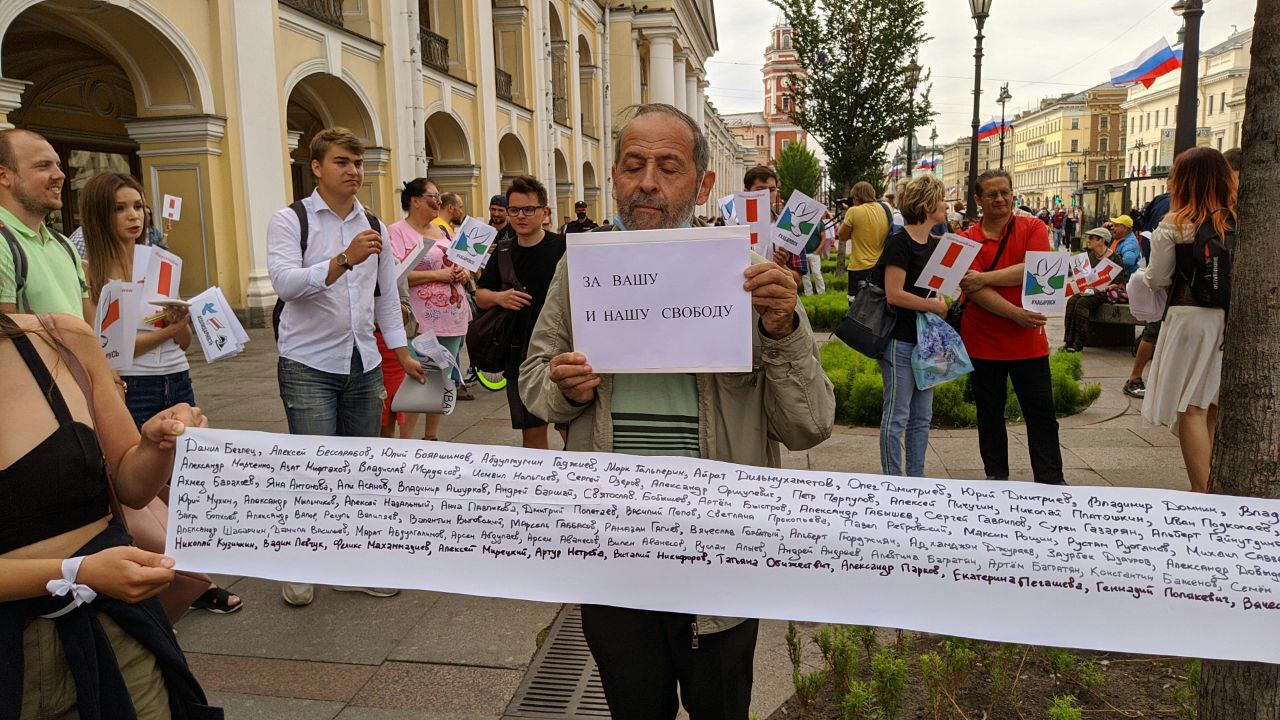 ЗА ВАШУ
И НАШУ СВОБОДУ
#ХАБАРОВСК
#ХАБАРОВСК
Данил Беглец, Алексей Бессарабов, Юлий Бояршинов, Абдулмумин Гаджиев, Марк Гальперин, Айрат Дильмухаметов, Олег Дмитриев, Юрий Дмитриев, Владимир Домнин, Влад
Александр Марченко, Азат Мифтахов, Владислав Мордасов, Исмаил Нальгиев, Сергей Озеров, Александр Оршулевич, Пётр Парпулов, Алексей Пичугин, Николай Платошкин, Иван Подкопаев
Ахмед Барахоев, Яна Антонова, Али Асанов, Владимир Ашурков, Андрей Баршай, Святослав Бобышев, Артём Быстров, Александр Габышев, Сергей Гаврилов, Сурен Газарян, Альберт Гайнутдинов
Юрий Мухин, Александр Мыльников, Алексей Навальный, Анна Павликова, Дмитрий Полетаев, Василий Попов, Светлана Прокопьева, Павел Ребровский, Максим Рощин, Рустем Рустамов, Михаил
Заир Боташев, Александр Валов, Расуль Велилаев, Валентин Выговский, Марсель Габбасов, Рамазан Гагиев, Вячеслав Горбатый, Альберт Горджиян, Ахмаджон Джураев, Заурбек Дзауров, Александр
Александр Шабарчин, Данила Васильев, Марат Абдулгалимов, Арсен Абдулаев, Арсен Аванесов, Вилен Аванесов, Руслан Алыев, Андрей Андреев, Алевтина Багратян, Артём Багратян, Константин Баженов, Семён
Николай Кузичкин, Вадим Левчук, Феликс Махаммадиев, Алексей Мирецкий, Артур Нетреба, Виталий Никифоров, Татьяна Обижествит, Александр Парков, Екатерина Пегашева, Геннадий Полакевич, Вячес